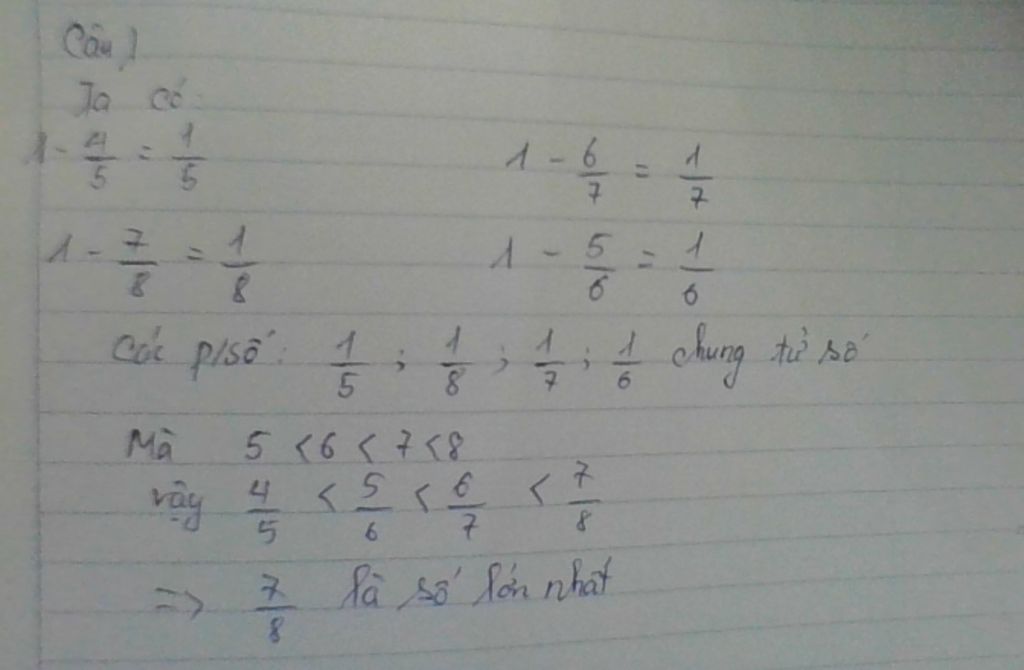 Câu 1
Ta có:
1 - 4/5 = 1/5    1 - 6/7 = 1/7
1 - 7/8 = 1/8    1 - 5/6 = 1/6
Các p/số: 1/5 ; 1/8 ; 1/7 ; 1/6 chung tử số
Mà 5 < 6 < 7 < 8
vậy 4/5 < 5/6 < 6/7 < 7/8
=> 7/8 là số lớn nhất